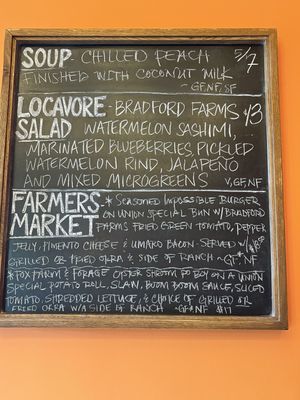 SOUP - CHILLED PEACH 5/7
FINISHED WITH COCONUT MILK
~GF,NF,SF
LOCAVORE - BRADFORD FARMS 13
SALAD WATERMELON SASHIMI,
MARINATED BLUEBERRIES, PICKLED
WATERMELON RIND, JALAPEÑO
AND MIXED MICROGREENS V,GF,NF
FARMERS * SEASONED IMPOSSIBLE BURGER
MARKET ON UNION SPECIAL BUN W/ BRADFORD
FARMS FRIED GREEN TOMATO, PEPPER
JELLY, PIMENTO CHEESE & UMAKO BACON - SERVED W/
GRILLED OR FRIED OKRA & SIDE OF RANCH ~GF*NF
* FOX FARM & FORAGE OYSTER SHROOM PO BOY ON A UNION
SPECIAL POTATO ROLL, SLAW, BOOM BOOM SAUCE, SLICED
TOMATO, SHREDDED LETTUCE, & CHOICE OF GRILLED OR
FRIED OKRA W/ A SIDE OF RANCH ~GF*NF $17